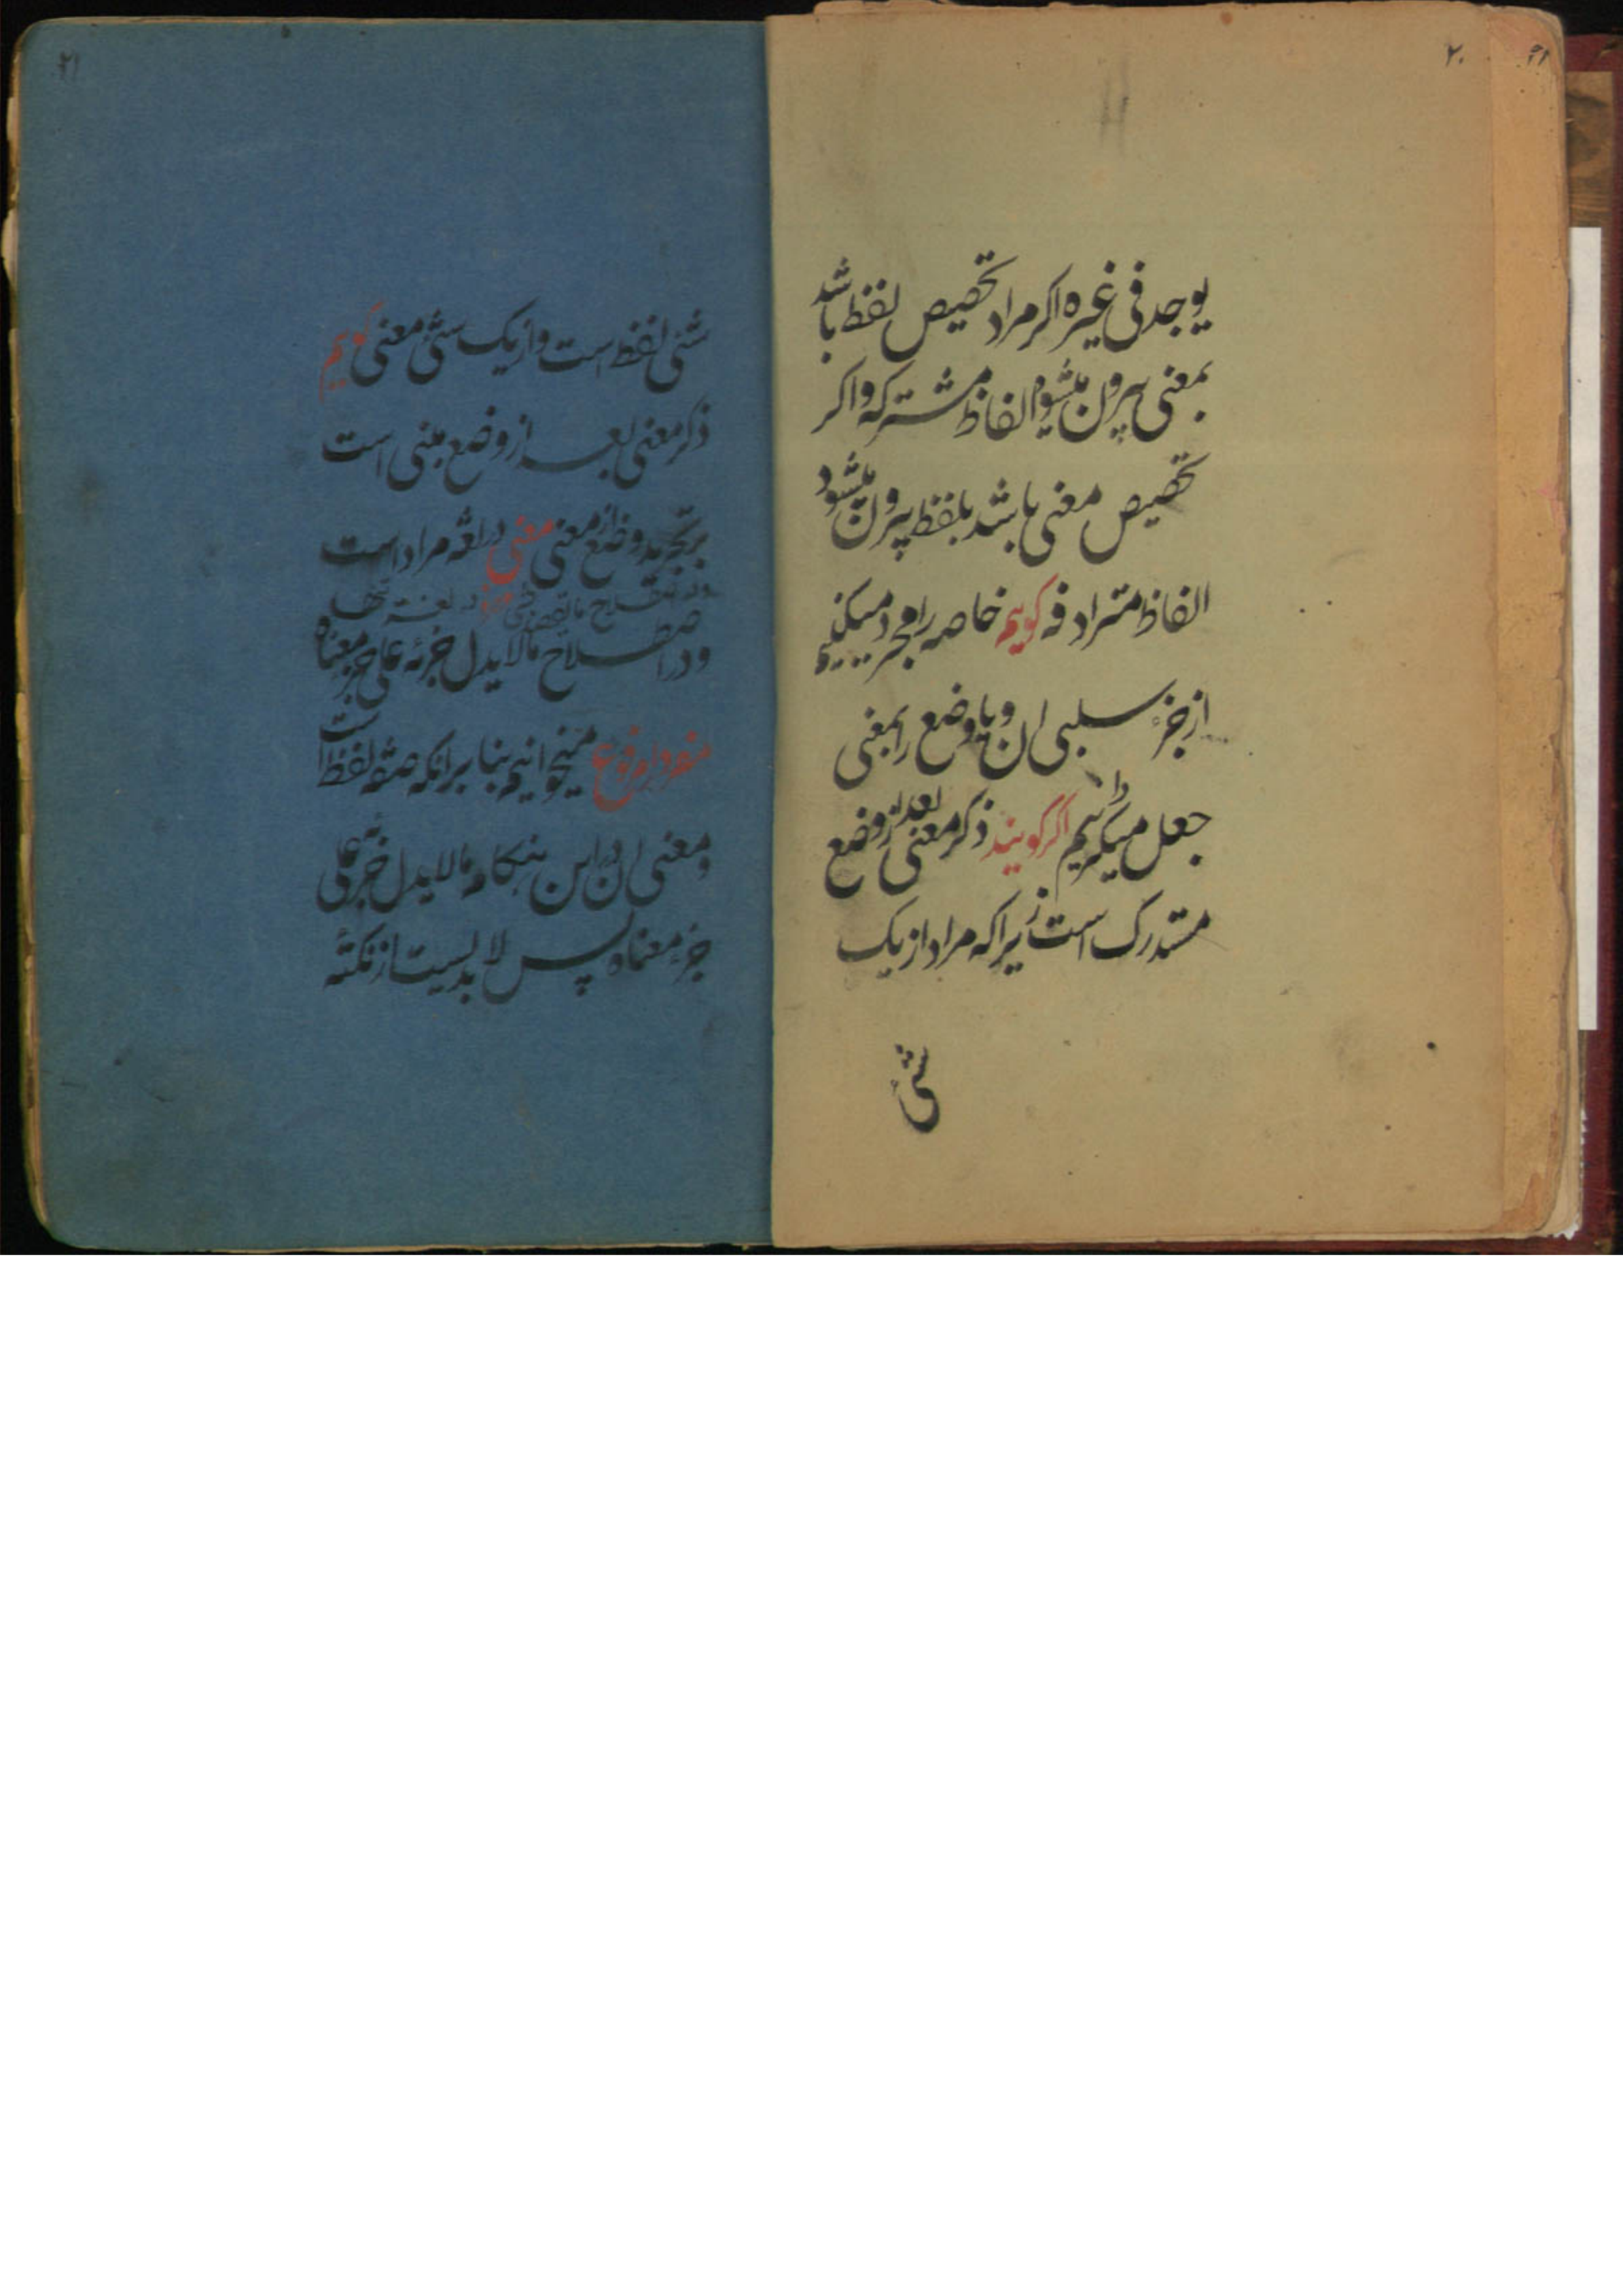 ۲۰
یوجد فی غیره اکر مراد تخصیص لفظ باشد
بمعنی بیرون میشود الفاظ مشترکه و اکر
تخصیص معنی باشد بلفظ بیرون میشود
الفاظ مترادفه کوییم خاصه را مجرد میکنیم
از جزء سلبی ان و یا وضع را بمعنی
جعل میکیریم اکر کویند ذکر معنی بعد از وضع
مستدرک است زیرا که مراد از یک
شی
۲۱
شی لفظ است و از یک شیء معنی کوییم
ذکر معنی بعد از وضع مبنی است
بر تجرید وضع از معنی معنی در لغة مراد است
و در اصطلاح مالا یدل جزئه علی جزء معناه
مفرد را مرفوع میخوانیم بنا بر انکه صفة لفظ است
و معنی ان در این هنکام مالا یدل جزئه علی
جزء معناه پس لا بد نیست از نکته